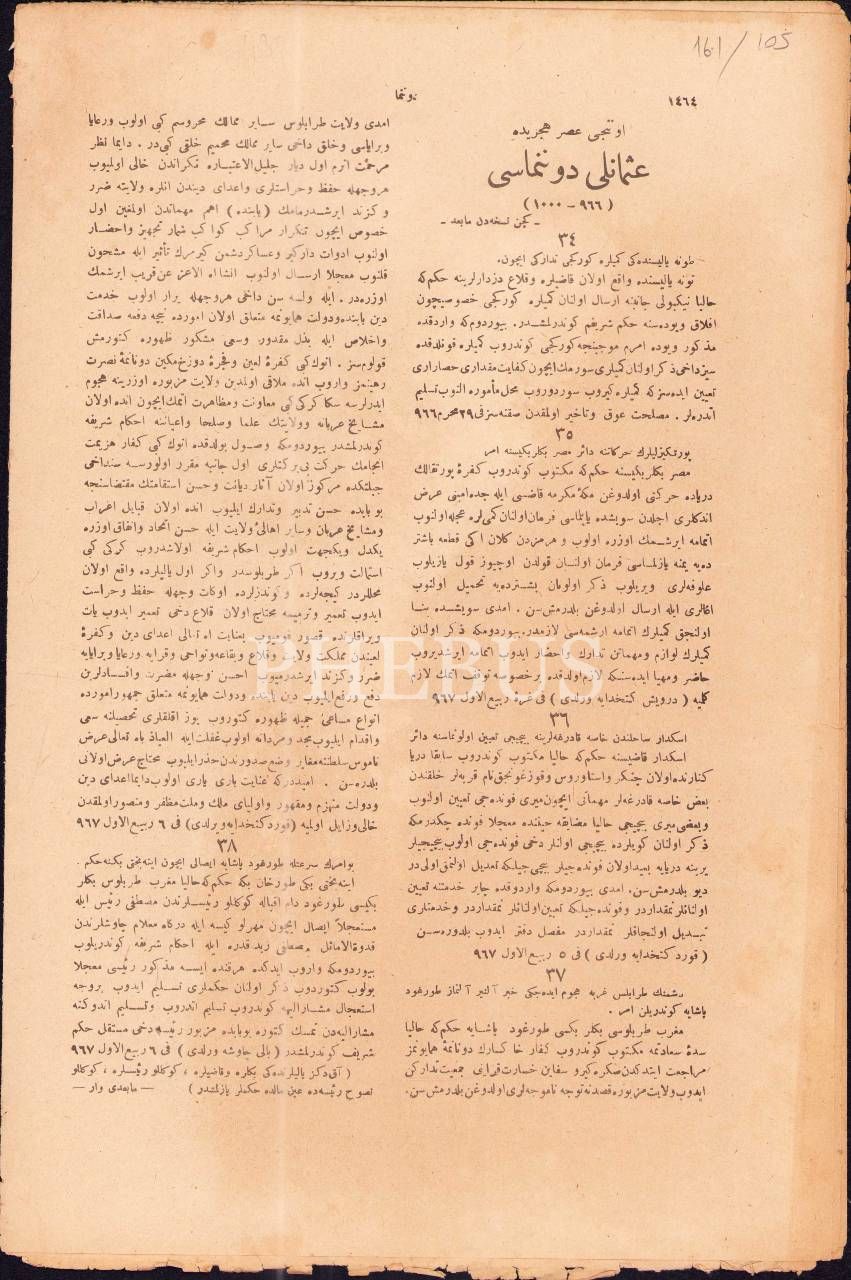 161/105
١٤٦٤
دوننما
اوننجی عصر هجریده
عثمانلی دوننماسی
(٩٦٦ – ١٠٠٠)
- کچن نسخه‌دن مابعد -
٣٤
طونه یالیسنده‌کی کمیلره کورکجی تدارکی ایچون.
تونه یالیسنده واقع اولان قاضیلره وقلاع دزدارلرینه حکم که
حالیا نیکبولی جانبنه ارسال اولنان کمیلره کورکجی خصوصیچون
افلاق ویوده‌سنه حکم شریفم کوندرلمشدر. بیوردم که واردقده
مذکور ویوده امرم موجبنجه کورکجی کوندروب کمیلره قونلدقده
سیز داخی ذکر اولنان کمیلری سورمك ایچون کفایت مقداری حصاراری
تعیین ایده‌سز که کمیلره کیروب سوردوروب محل مأموره النوب تسلیم
اتدره‌لر. مصلحت عوق وتأخیر اولمقدن صقنه‌سز فی ٢٩ محرم ٩٦٦
٣٥
پورتکیزلیلرك حرکاتنه دائر مصر بکلربکیسنه امر
مصر بکلربکیسنه حکم که مکتوب کوندروب کفرهٔ پورتقالك
دریاده حرکتی اولدوغن مکهٔ مکرمه قاضیسی ایله جده امینی عرض
اندکلری اجلدن سویشده یاپلماسی فرمان اولنان کمی‌لره عجله اولنوب
اتمامه ایرشمك اوزره اولوب و هرمزدن کلان اکی قطعه باشتر
ده‌یه یمنه یازلماسی فرمان اولنان قولدن اوچیوز قول یازیلوب
علوفه‌لری ویریلوب ذکر اولونان بشترده‌یه تحمیل اولنوب
اغالری ایله ارسال اولدوغن بلدرمش‌سن. امدی سویشده بنا
اولنجق کمیلرك اتمامه ارشمه‌سی لازمدر. بیوردومکه ذکر اولنان
کمیلرك لوازم ومهماتن تدارك واحضار ایدوب اتمامه ایرشدیروب
حاضر ومهیا ایده‌سنکه لازم اولدقده بر خصوصه توقف اتمك لازم
کلمیه (درویش کتخدایه ورلدی) فی غرهٔ ربیع الاول ٩٦٧
٣٦
اسکدار ساحلندن خاصه قادرغه‌لرینه بیچیجی تعیین اولونماسنه دائر
اسکدار قاضیسنه حکم که حالیا مکتوب کوندروب سابقا دریا
کنارنده اولان چنکلر واستاوروس وقوزغونجق نام قریه‌لر خلقندن
بعض خاصه قادرغه‌لر مهماتی ایچون میری فونده‌جی تعیین اولنوب
وبعضی میری بیچیجی حالیا مضایقه حیننده معجلا فونده چکدرمکه
ذکر اولنان کویلرده بیچیجی اولنلر دخی فونده‌جی اولوب بیچیجیلر
یرینه دریایه بعید اولان فونده‌جیلر بیچیجیلکه تعدیل اولنمق اولی‌در
دیو بلدرمش‌سن. امدی بیوردومکه واردوقده چابر خدمتنه تعیین
اولنانلر نمقداردر و فونده‌جیلکه تعیین اولنانلر نمقداردر وخدمتلری
تبدیل اولنجاقلر نمقداردر مفصل دفتر ایدوب بلدوره‌سن
(قورد کتخدایه ورلدی) فی ٥ ربیع الاول ٩٦٧
٣٧
دشمنك طرابلس غربه هجوم ایده‌جکی خبر آلنیر آلنماز طورغود
پاشایه کوندریلن امر.
مغرب طربلوسی بکلر بکیسی طورغود پاشایه حکم که حالیا
سدهٔ سعادتمه مکتوب کوندروب کفار خاکسارك دونانمهٔ همایونمز
مراجعت ایتدکدن صکره کیرو سفاین خسارت قراینی جمعیت تدارکن
ایدوب ولایت مزبوره قصدنه توجه ناموجه‌لری اولدوغن بلدرمش‌سن.
امدی ولایت طرابلوس سایر ممالك محروسم کبی اولوب ورعایا
وبرایاسی وخلق داخی سایر ممالك محمیم خلقی کبی‌در. دایما نظر
مرحمت اثرم اول دیار جلیل الاعتباره تکراندن خالی اولمیوب
هر وجهله حفظ وحراستلری واعدای دیندن انلره ولایته ضرر
وکزند ایرشدرمامك (یابنده) اهم مهماتدن اولمغین اول
خصوص ایچون تکرار مراکب کواکب شمار تجهیز واحضار
اولنوب ادوات دارکیر وعساکر دشمن کیرمرك تأثیر ایله مشحون
قلنوب معجلا ارسال اولنوب انشاءالله الاعز عن‌قریب ایرشمك
اوزره‌در. ایله ولسه سن داخی هر وجهله یرار اولوب خدمت
دین بابنده ودولت همایونمه متعلق اولان امورده نیجه دفعه صداقت
واخلاص ایله بذل مقدور وسعی مشکور ظهوره کتورمش
قولوم سز. انوك کبی کفرهٔ لعین وفجرهٔ دوزخ مکین دونانمهٔ نصرت
رهینمز واروب انده ملاقی اولمدین ولایت مزبوره اوزرینه هجوم
ایدرلرسه سکا کرکی کبی معاونت ومظاهرت اتمك ایچون انده اولان
مشایخ عربانه وولایتك علما وصلحا واعیاننه احکام شریفه
کوندرلمشدر بیوردومکه وصول بولدقده انوك کبی کفار هزیمت
انجامك حرکت بی‌برکتلری اول جانبه مقرر اولورسه سنداخی
جبلتکده مرکوز اولان آثار دیانت وحسن استقامتك مقتضاسنجه
بو بابده حسن تدبیر وتدارك ایلیوب انده اولان قبایل اعراب
ومشایخ عربان وسایر اهالیٔ ولایت ایله حسن اتحاد واتفاق اوزره
یکدل ویکجهت اولوب احکام شریفه اولاشدروب کرکی کبی
استمالت ویروب اکر طربلوسدر واکر اول یالیلرده واقع اولان
محللردر کیجه‌لرده وکوندزلرده اوکات وجهله حفظ وحراست
ایدوب تعمیر وترمیمه محتاج اولان قلاع دخی تعمیر ایدوب یات
ویراقلرنده قصور قومیوب بعنایت الله تعالی اعدای دین وکفرهٔ
لعیندن مملکت ولایت وقلاع وبقاعه ونواحی وقرایه ورعایا وبرایایه
ضرر وکزند ایرشدرمیوب احسن وجهله مضرت وافسادلرین
دفع ورفع ایلیوب دین بابنده ودولت همایونمه متعلق جمهور اموره
انواع مساعیٔ جمیله ظهوره کتوروب یوز اقلقلری تحصیلنه سعی
واقدام ایلیوب مجد ومردانه اولوب غفلت ایله العیاذ بالله تعالی عرض
ناموس سلطنته مغایر وضع صدورندن حذر ایلیوب محتاج عرض اولانی
بلدره‌سن. امیددرکه عنایت باری یاری اولوب دایما اعدای دین
ودولت منهزم ومقهور واولیای ملك وملت مظفر ومنصور اولمقدن
خالی وزایل اولمیه (قورد کتخدایه ویرلدی) فی ٦ ربیع الاول ٩٦٧
٣٨
بو امرك سرعتله طورغود پاشایه ایصالی ایچون اینه‌بختی بکنه حکم.
اینه‌بختی بکی طورخان بکه حکم که حالیا مغرب طربلوس بکلر
بکیسی طورغود دام اقباله کوکللو رئیسلرندن مصطفی رئیس ایله
مستعجلاً ایصال ایچون مهرلو کیسه ایله درکاه معلام چاوشلرندن
قدوة الاماثل مصطفی زید قدره ایله احکام شریفه کوندریلوب
بیوردومکه واروب ایدکده هرقنده ایسه مذکور رئیسی معجلا
بولوب کتوردوب ذکر اولنان حکملری تسلیم ایدوب بروجه
استعجال مشارالیهه کوندروب تسلیم اتدروب وتسلیم اندوکنه
مشارالیه‌دن تمسك کتوره بو بابده مزبور رئیسه دخی مستقل حکم
شریف کوندرلمشدر (بالی چاوشه ورلدی) فی ٦ ربیع الاول ٩٦٧
(آق دکز یالیلرنده‌کی بکلره وقاضیلره، کوکللو رئیسلره، کوکللو
نصوح رئیسه‌ده عینی مالده حکملر یازلمشدر) — مابعدی وار —
PHEBUS